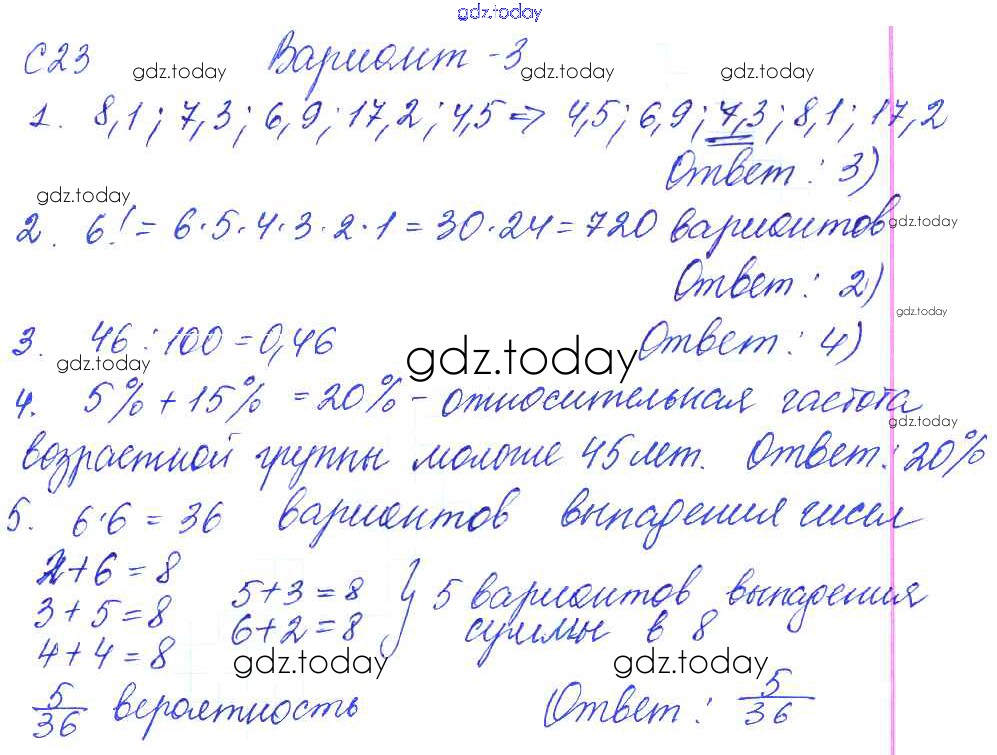 gdz.today
С23 Вариант -3
gdz.today gdz.today gdz.today
1. 8,1; 7,3; 6,9; 17,2; 4,5 => 4,5; 6,9; 7,3; 8,1; 17,2
Ответ: 3)
gdz.today
2. 6! = 6·5·4·3·2·1 = 30·24 = 720 вариантов
gdz.today
Ответ: 2)
gdz.today
3. 46 : 100 = 0,46 Ответ: 4)
gdz.today gdz.today
4. 5% + 15% = 20% - относительная частота
gdz.today
возрастной группы моложе 45 лет. Ответ: 20%
5. 6·6 = 36 вариантов выпадения чисел
2+6 = 8
3+5 = 8 5+3 = 8 } 5 вариантов выпадения
4+4 = 8 6+2 = 8 суммы в 8
gdz.today gdz.today
5/36 вероятность Ответ: 5/36